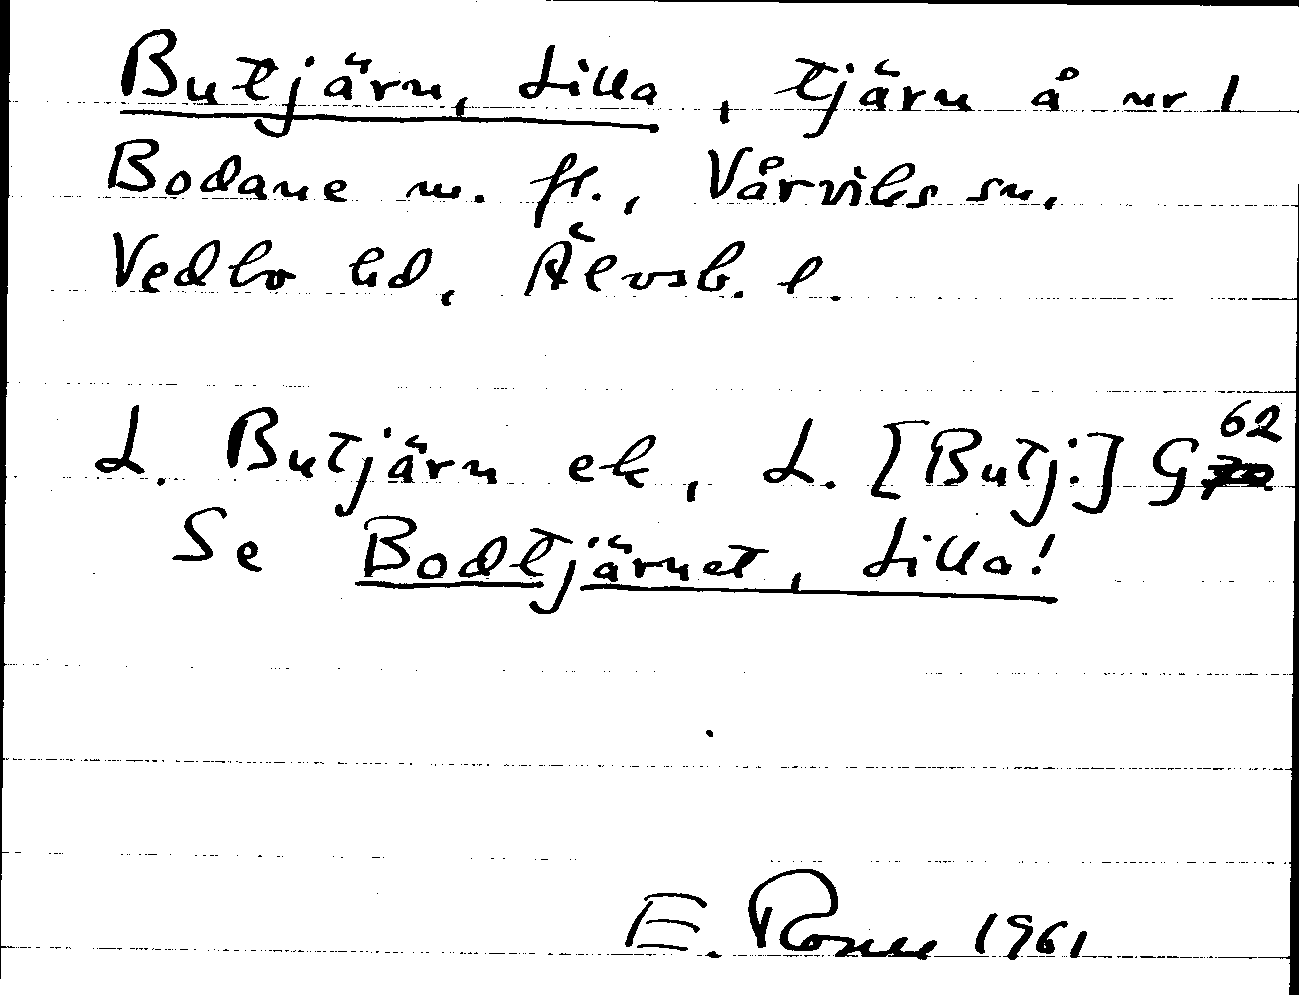 Butjärn, Lilla, tjärn å nr 1
Bodane m. fl., Vårviks sn,
Vedbo hd, Älvsb. l.
L. Butjärn ek, L. [Butj:] G 62
Se Bodtjärnet, Lilla!
E. 1961